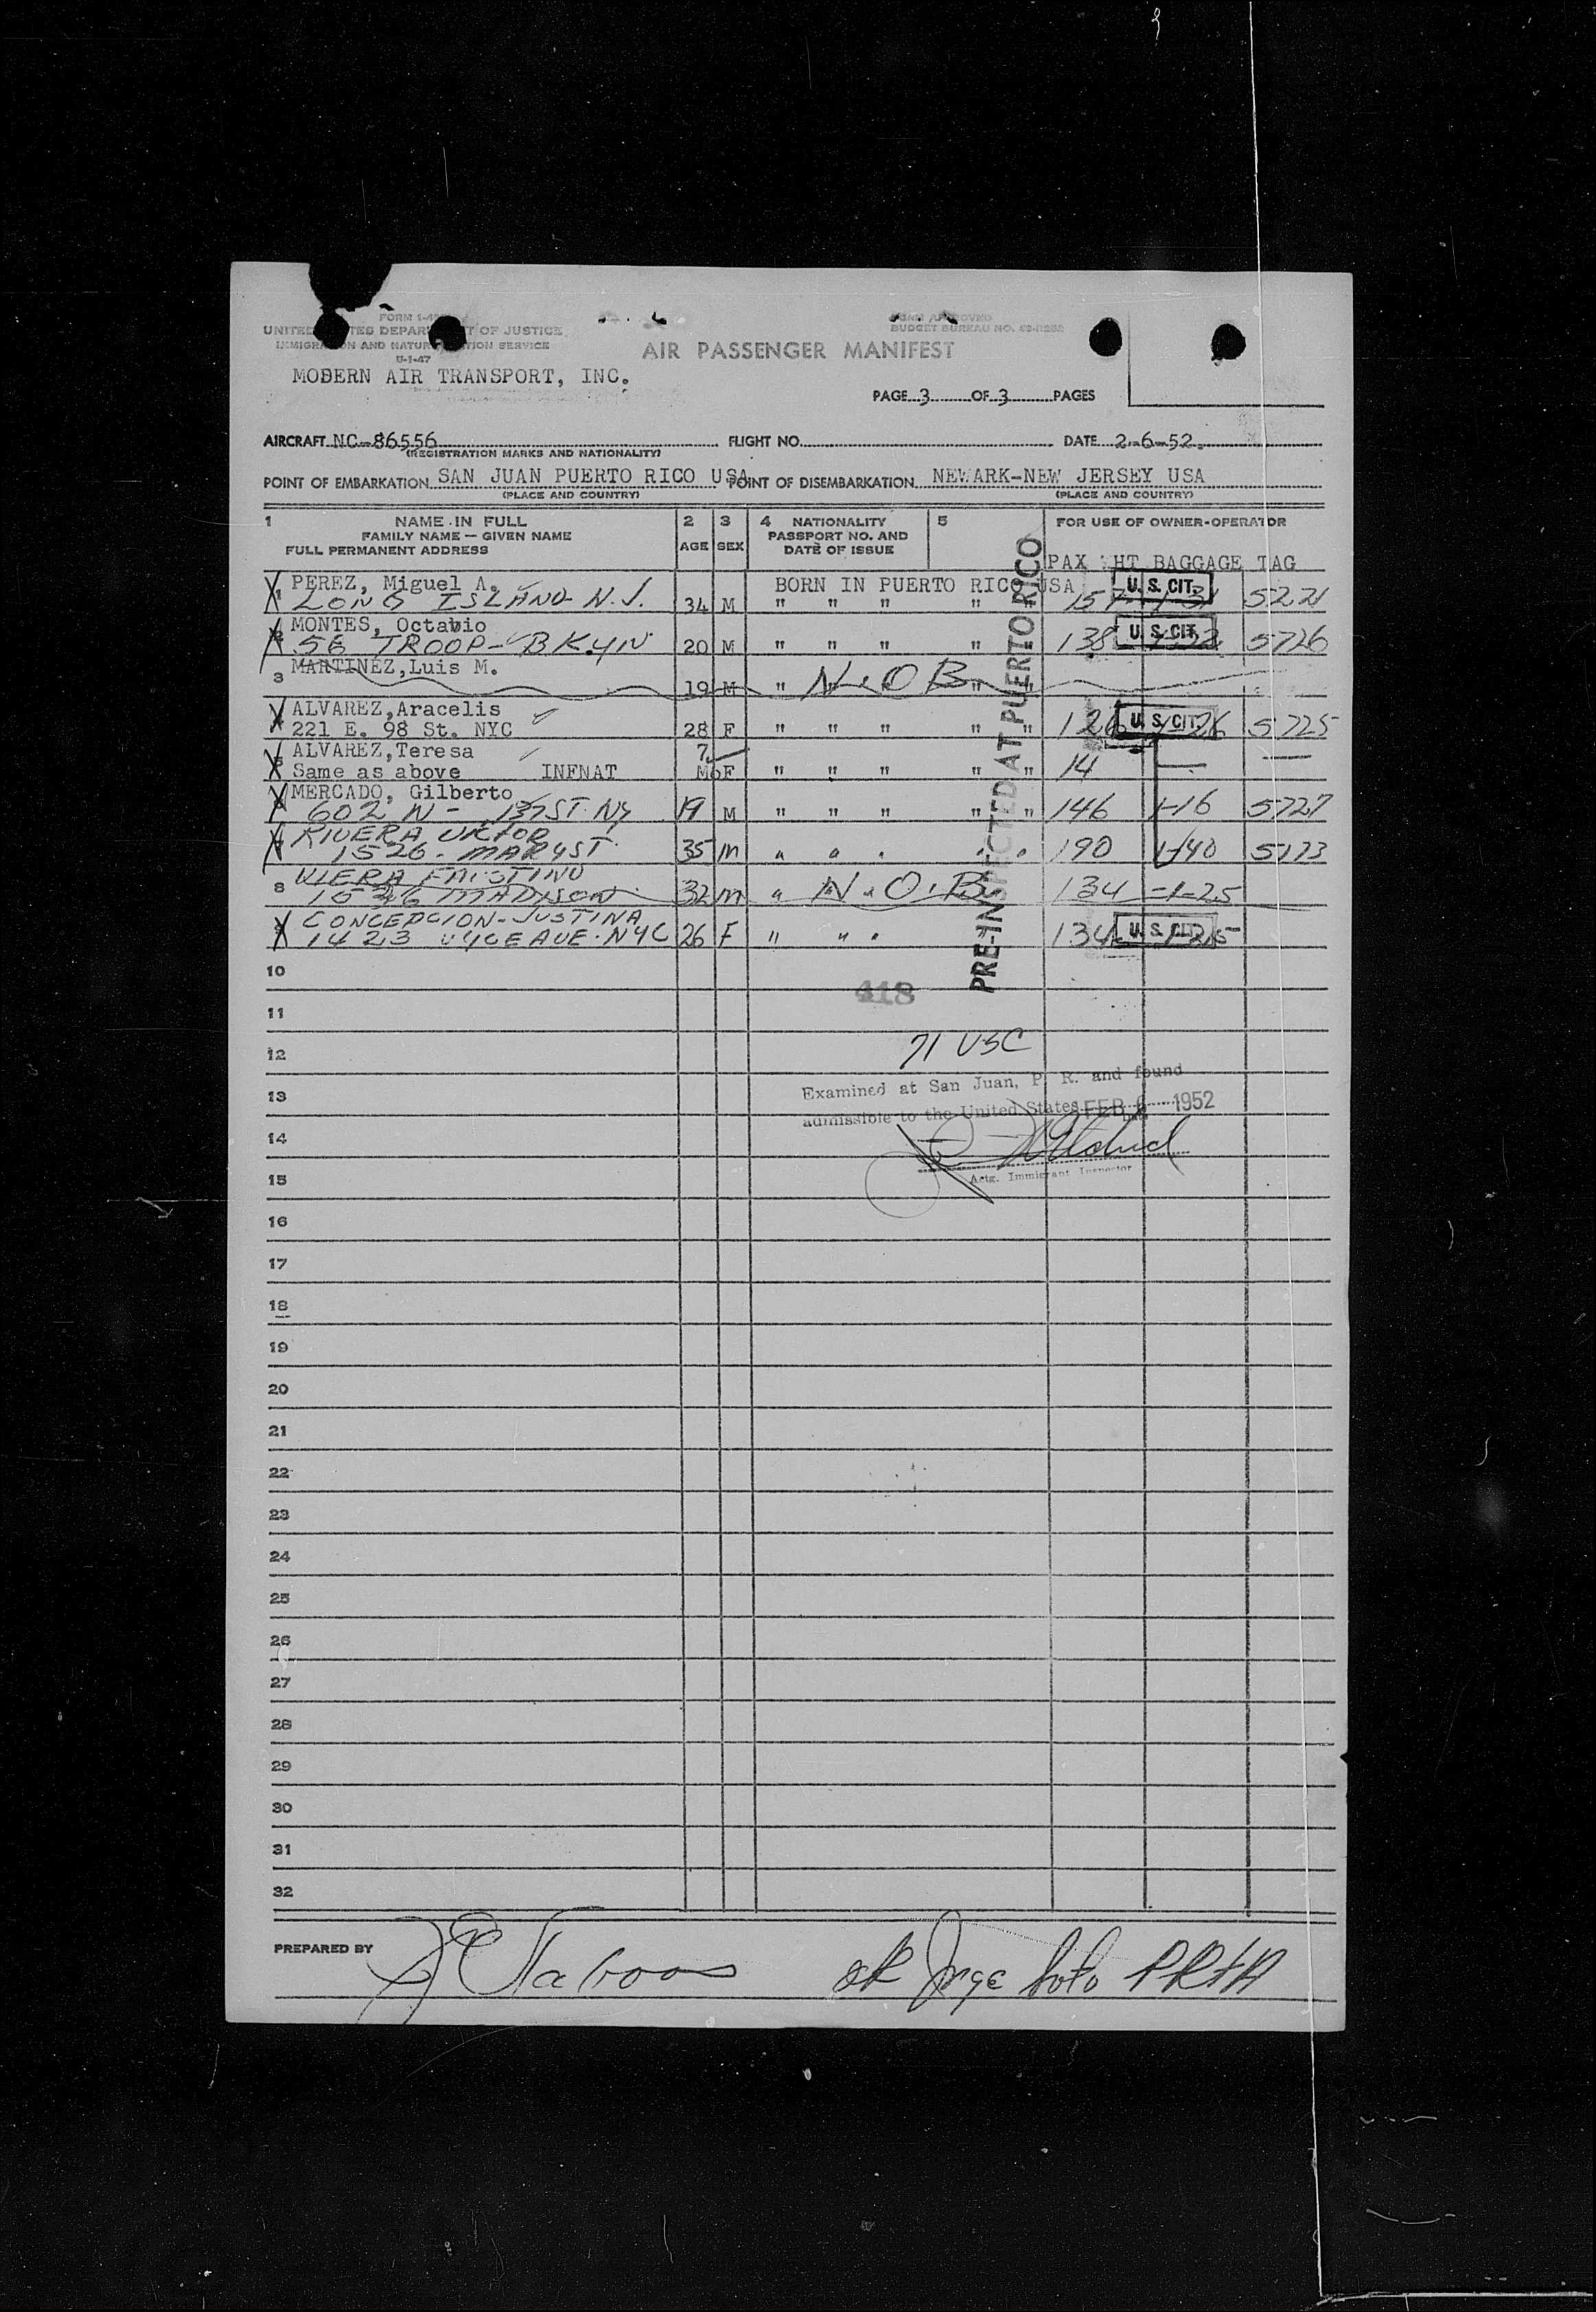 FORM I-4
UNITED STATES DEPARTMENT OF JUSTICE
IMMIGRATION AND NATURALIZATION SERVICE
FORM APPROVED
BUDGET BUREAU NO.
AIR PASSENGER MANIFEST
MODERN AIR TRANSPORT, INC.
PAGE 3 OF 3 PAGES
AIRCRAFT NC-86556 FLIGHT NO. DATE 2-6-52.
(REGISTRATION MARKS AND NATIONALITY)
POINT OF EMBARKATION SAN JUAN PUERTO RICO USA POINT OF DISEMBARKATION NEWARK-NEW JERSEY USA
(PLACE AND COUNTRY) (PLACE AND COUNTRY)
1 NAME IN FULL 2 3 4 NATIONALITY 5 FOR USE OF OWNER-OPERATOR
FAMILY NAME — GIVEN NAME PASSPORT NO. AND
FULL PERMANENT ADDRESS AGE SEX DATE OF ISSUE
PAX WHT BAGGAGE TAG
1 PEREZ, Miguel A. BORN IN PUERTO RICO USA U. S. CIT.
LONG ISLAND N.J. 34 M " " " " 157 5221
2 MONTES, Octavio U. S. CIT.
56 TROOP - BKLYN 20 M " " " " 138 5726
3 MARTINEZ, Luis M.
19 M " N.O.B. "
4 ALVAREZ, Aracelis U. S. CIT.
221 E. 98 St. NYC 28 F " " " " " 126 1-26 5725
5 ALVAREZ, Teresa 7
Same as above INFNAT Mo F " " " " " 14
6 MERCADO, Gilberto
602 N - 137 ST. NY 19 M " " " " " 146 1-16 5727
7 RIVERA VICTOR
1526 - MARY ST. 35 M " " " " " 190 1-40 5723
8 VIERA FAUSTINO
MADISON 32 M " N.O.B. 134 -1-25
9 CONCEPCION - JUSTINA U. S. CIT.
1423 VYCE AVE. NYC 26 F " " " 134 1-25
PRE-INSPECTED AT PUERTO RICO
10
418
11
12
71 USC
13
Examined at San Juan, P. R. and found
admissible to the United States FEB 6 1952
14
15
Actg. Immigrant Inspector
16
17
18
19
20
21
22
23
24
25
26
27
28
29
30
31
32
PREPARED BY
ok Jorge Soto PRTA